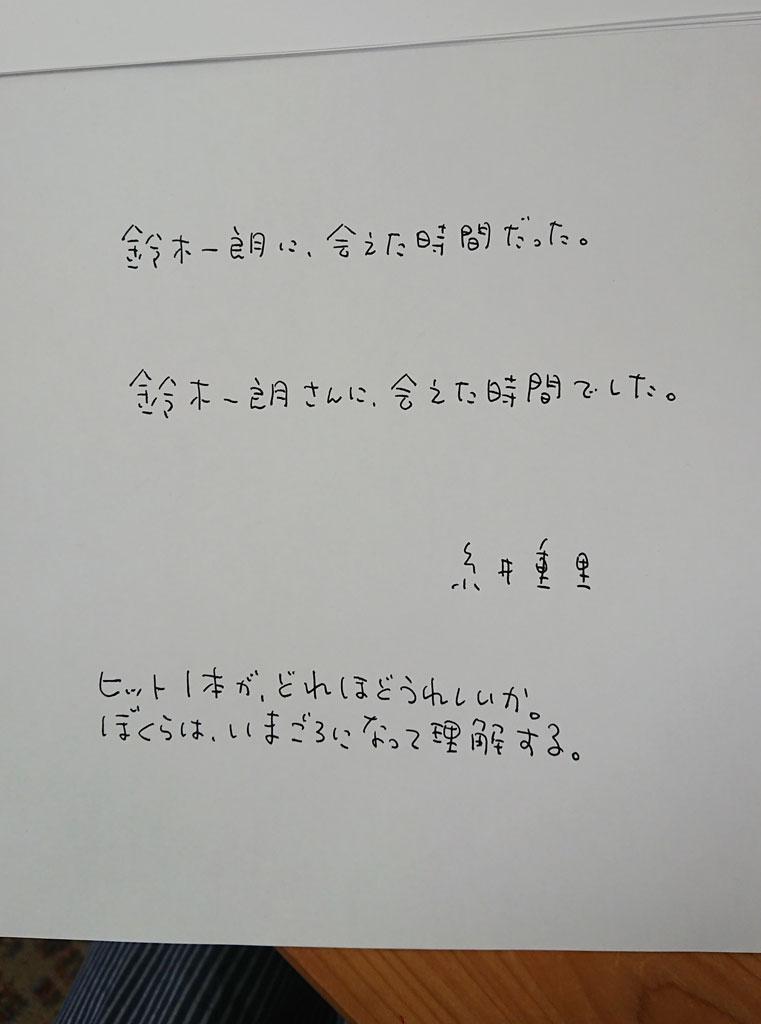 鈴木一朗に、会えた時間だった。
鈴木一朗さんに、会えた時間でした。
糸井重里
ヒット1本が、どれほどうれしいか。
ぼくらは、いまごろになって理解する。